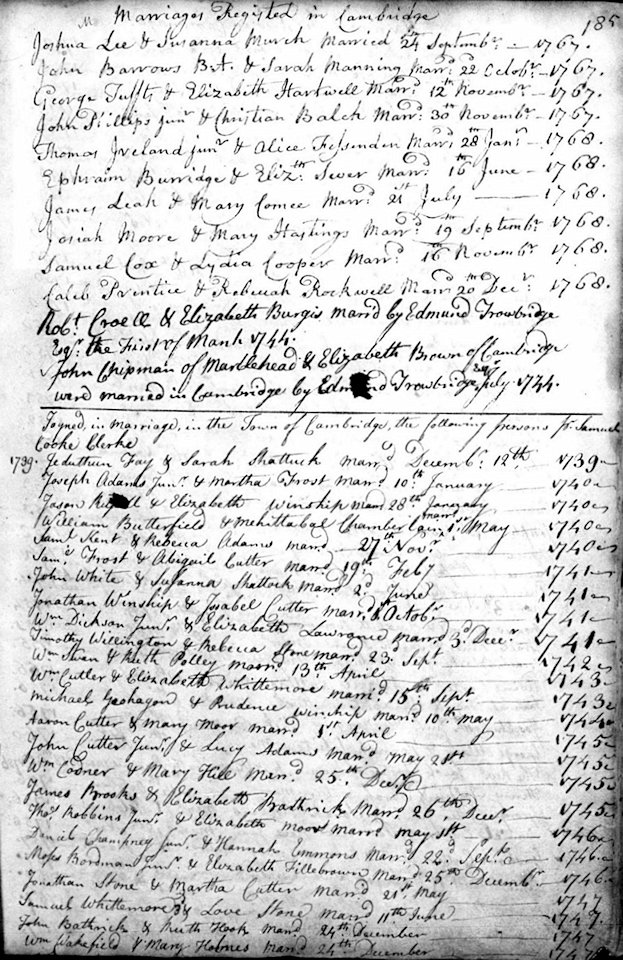 Marriages Registed in Cambridge 185
Joshua Lee & Susanna Murch Married 24th Septembr. — 1767.
John Barrows & Sarah Manning Marrd. 22 Octobr. — 1767.
George Tuffts & Elizabeth Hartwell Marrd. 12th Novembr. — 1767.
John Phillips junr. & Christian Balch Marrd. 30th Novembr. — 1767.
Thomas Ireland junr. & Alice Fessenden Marrd. 28th Janr. — 1768.
Ephraim Burridge & Elizth. Sever Marrd. 16th June — 1768.
James Leah & Mary Comee Marrd. 21st July — 1768.
Josiah Moore & Mary Hastings Marrd. 19th Septembr. 1768.
Samuel Cox & Lydia Cooper Marrd. 16th Novembr. 1768.
Caleb Prentice & Rebecah Rockwell Marrd. 20th Decr. 1768.
Robt. & Elizabeth Burgis marrd by Edmund Trowbridge
Esqr. the First of March 1744.
John Chipman of Marblehead & Elizabeth Brown of Cambridge
were married in Cambridge by Edmund Trowbridge Esqr. July. 1744.
Joyned, in marriage, in the Town of Cambridge, the following persons pr. Samuel
Cooke Clerke
1739. Jeduthun Fay & Sarah Shattuck marrd. Decembr. 12th — 1739
Joseph Adams Junr. & Martha Frost marrd. 10th January — 1740
Jason & Elizabeth Winship marrd 28th January — 1740
William Butterfield & Mehittabal Chamberlain marrd. 1st May 1740
Saml. Kent & Rebecca Adams marrd. — 27th Novr. 1740
Saml. Frost & Abigail Cutter marrd 19th Feby 1741
John White & Susanna Shattock marrd. 2d. June 1741
Jonathan Winship & Isabel Cutter marrd. Octobr. 1741
Wm Dickson Junr. & Elizabeth Lawrance marrd. 3d. Decr. 1741
Timothy Wellington & Rebecca Stone marrd. 23d Sept. 1742
Wm Swan & Ruth Polley marrd. 13th April 1743
Wm Cutter & Elizabeth Whittemore marrd. 15th Sept. 1743
Michael Geohagon & Prudence Winship marrd. 10th may 1744
Aaron Cutter & Mary Moor marrd. 1st April 1745
John Cutter Junr. & Lucy Adams marrd May 21st 1745
Wm & Mary Hill Marrd. 25th. Decr. 1745
James Brooks & Elizabeth Bathrick Marrd. 26th, Decr. 1745
Thos. Robbins Junr. & Elizabeth moor marrd may 1st. 1746
Daniel Champney Junr. & Hannah Emmons Marrd. 22d. Septr. 1746
Moses Bordman Junr & Elizabeth Fillebrown Marrd 25th Decembr. 1746
Jonathan Stone & Martha Cutter marrd 21st. May 1747
Samuel Whittemore & Love Stone marrd 11th June 1747.
John Bathrick & Ruth Hook Marrd. 24th December 1747
Wm Wakefield & Mary marrd 24th December 1747